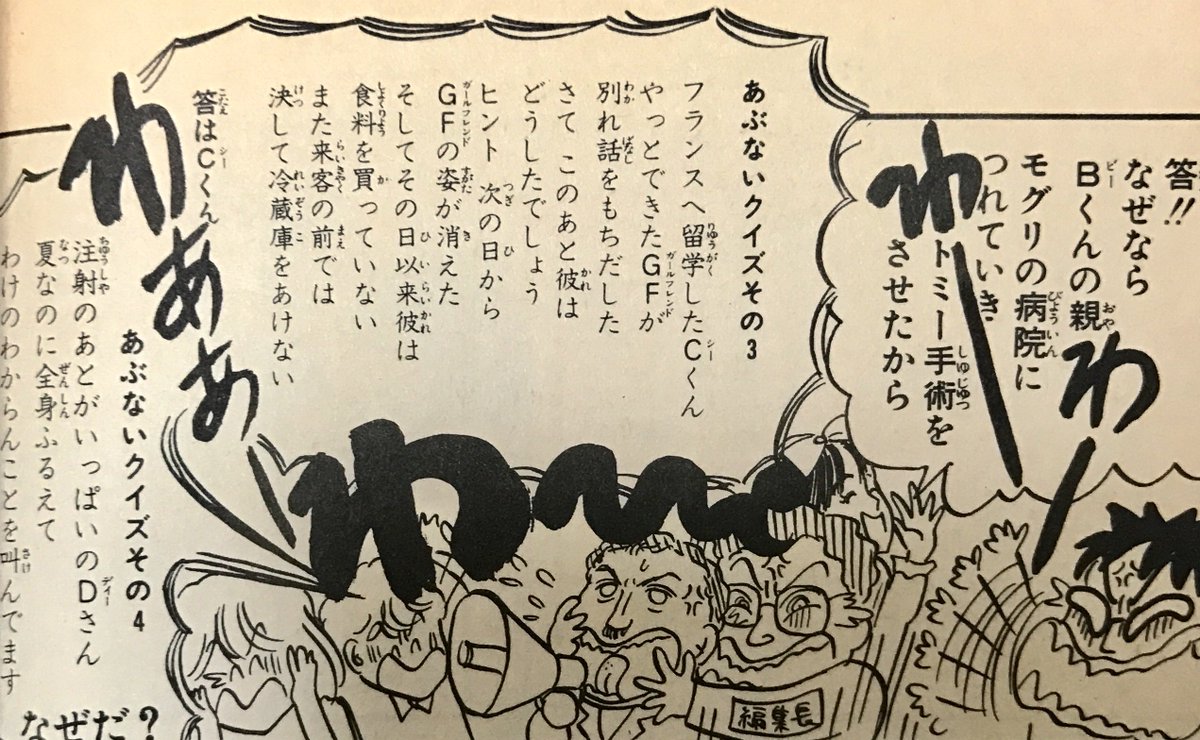 答!!
なぜなら
Bくんの親
モグリの病院に
つれていき
トミー手術を
させたから
わー
わー
あぶないクイズその3
フランスへ留学したCくん
やっとできたGFが
別れ話をもちだした
さて このあと彼は
どうしたでしょう
ヒント 次の日から
GFの姿が消えた
そしてその日以来彼は
食料を買っていない
また来客の前では
決して冷蔵庫をあけない
答はCくん
わああー
わー
編集長
あぶないクイズその4
注射のあとがいっぱいのDさん
夏なのに全身ふるえて
わけのわからんことを叫んでます
なぜだ?